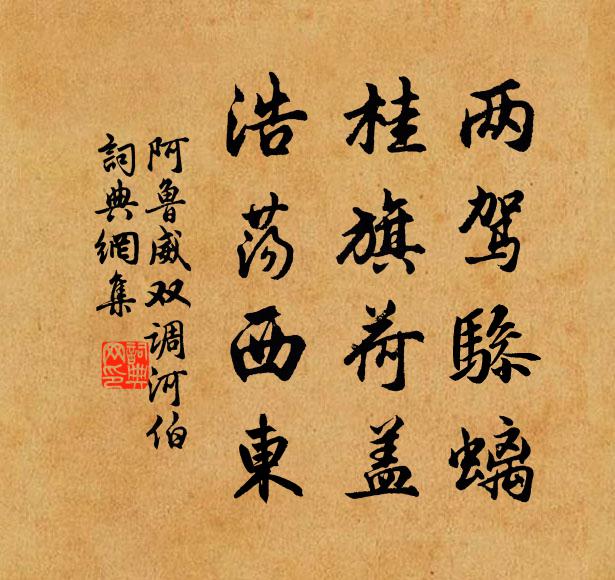 两驾骖螭
桂旗荷盖
浩荡西東
阿鲁威双调河伯
詞典網集
詞典网印